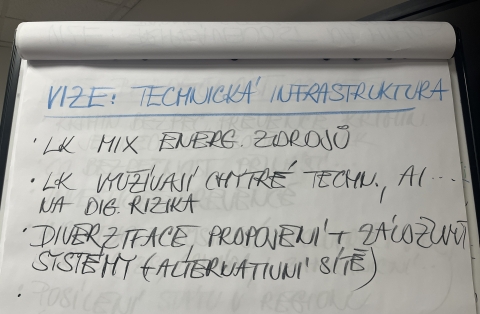 VIZE: TECHNICKÁ INFRASTRUKTURA
• LK MIX ENERG. ZDROJŮ
• LK VYUŽÍVAJÍ CHYTRÉ TECHN., AI ...
NA DIG. RIZIKA
• DIVERZIFACE, PROPOJENÍ + ZÁLOŽNÍ
SYSTÉMY (ALTERNATIVNÍ SÍTĚ)
•